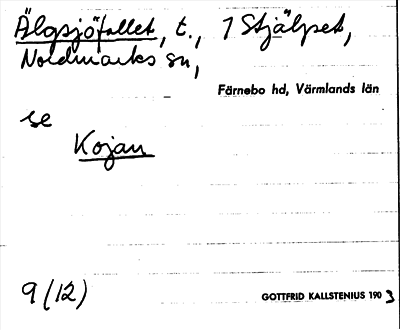 Älgsjöfallet, t., 1 Stjälpet,
Nordmarks sn,
Färnebo hd, Värmlands län
se
Kojan
9 (12)
GOTTFRID KALLSTENIUS 1903